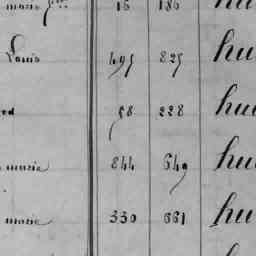 marie 16 180 hu
Louis 495 825 hu
58 228 hu
marie 844 640 hu
marie 330 661 hu